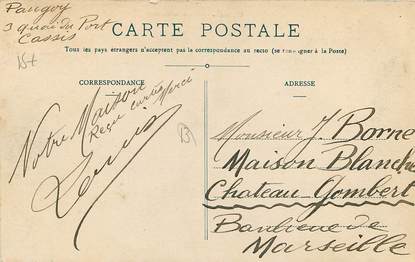 Paugoy
3 quai du Port
Cassis
CARTE POSTALE
Tous les pays étrangers n'acceptent pas la correspondance au recto (se renseigner à la Poste)
CORRESPONDANCE
Notre Maison
Reçu cartes Merci
Louis
ADRESSE
Monsieur J. Borne
Maison Blanche
Chateau Gombert
Banlieue de
Marseille